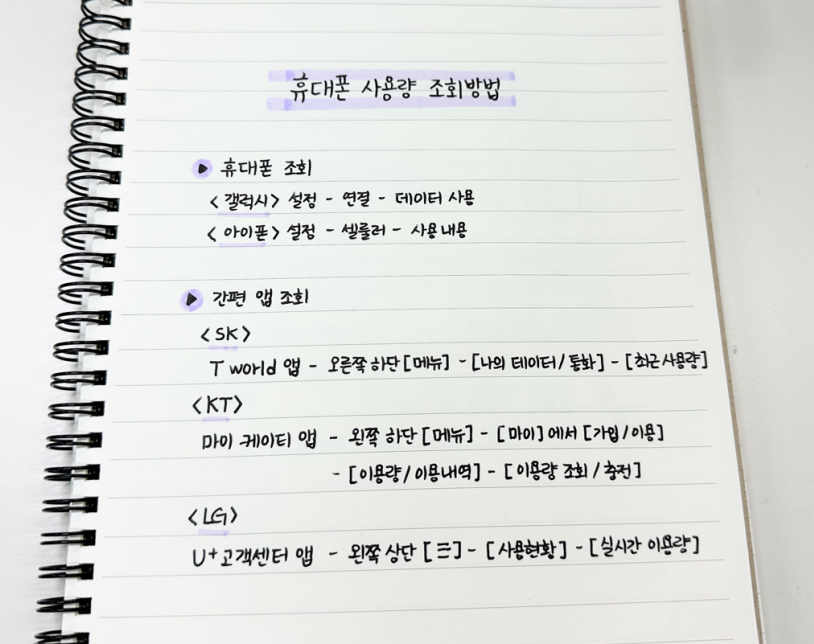 휴대폰 사용량 조회방법
▶ 휴대폰 조회
<갤럭시> 설정 - 연결 - 데이터 사용
<아이폰> 설정 - 셀룰러 - 사용내용
▶ 간편 앱 조회
<SK>
T world 앱 - 오른쪽 하단 [메뉴] - [나의 데이터/통화] - [최근 사용량]
<KT>
마이 케이티 앱 - 왼쪽 하단 [메뉴] - [마이] 에서 [가입/이용]
- [이용량/이용내역] - [이용량 조회/충전]
<LG>
U+고객센터 앱 - 왼쪽 상단 [☰] - [사용현황] - [실시간 이용량]